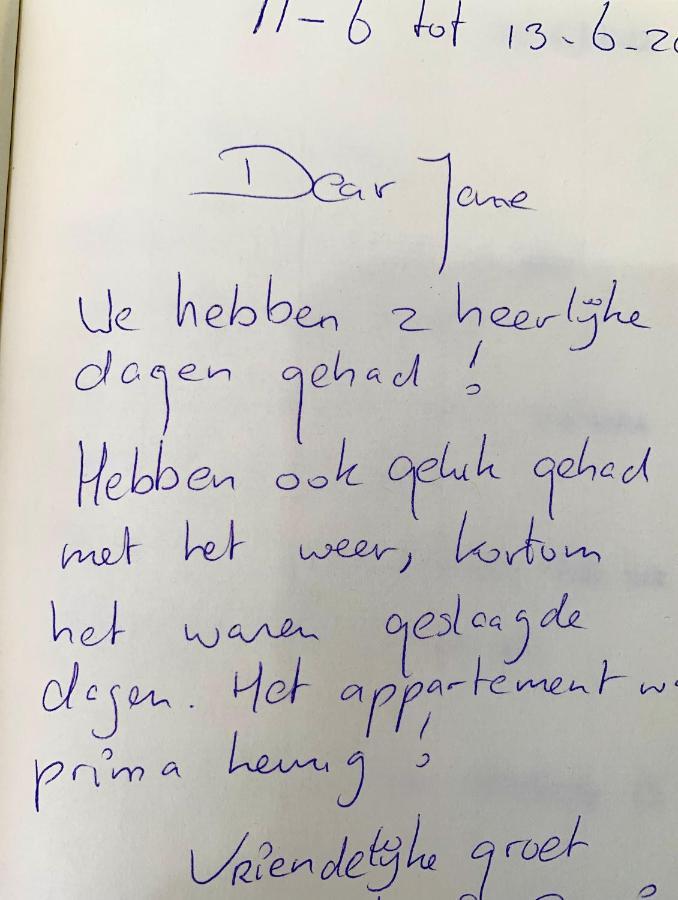 11-6 tot 13-6-20
Dear Jane
We hebben 2 heerlijke
dagen gehad!
Hebben ook geluk gehad
met het weer, kortom
het waren geslaagde
dagen. Het appartement wa
prima !
Vriendelijke groet